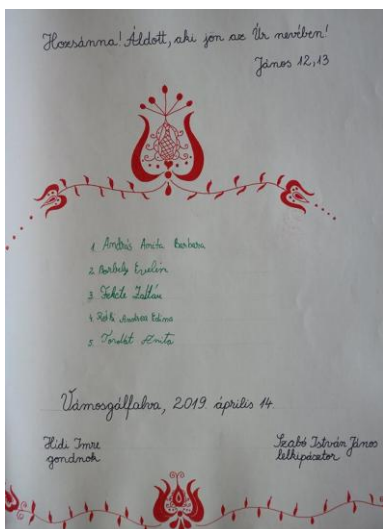 Hozsánna! Áldott, aki jön az Úr nevében!
János 12,13
1. András Anita Barbara
2. Borbély Evelin
3. Fekete Zoltán
4. Andrea Edina
5. Anita
Vámosgálfalva, 2019. április 14.
Hidi Imre
gondnok
Szabó István János
lelkipásztor